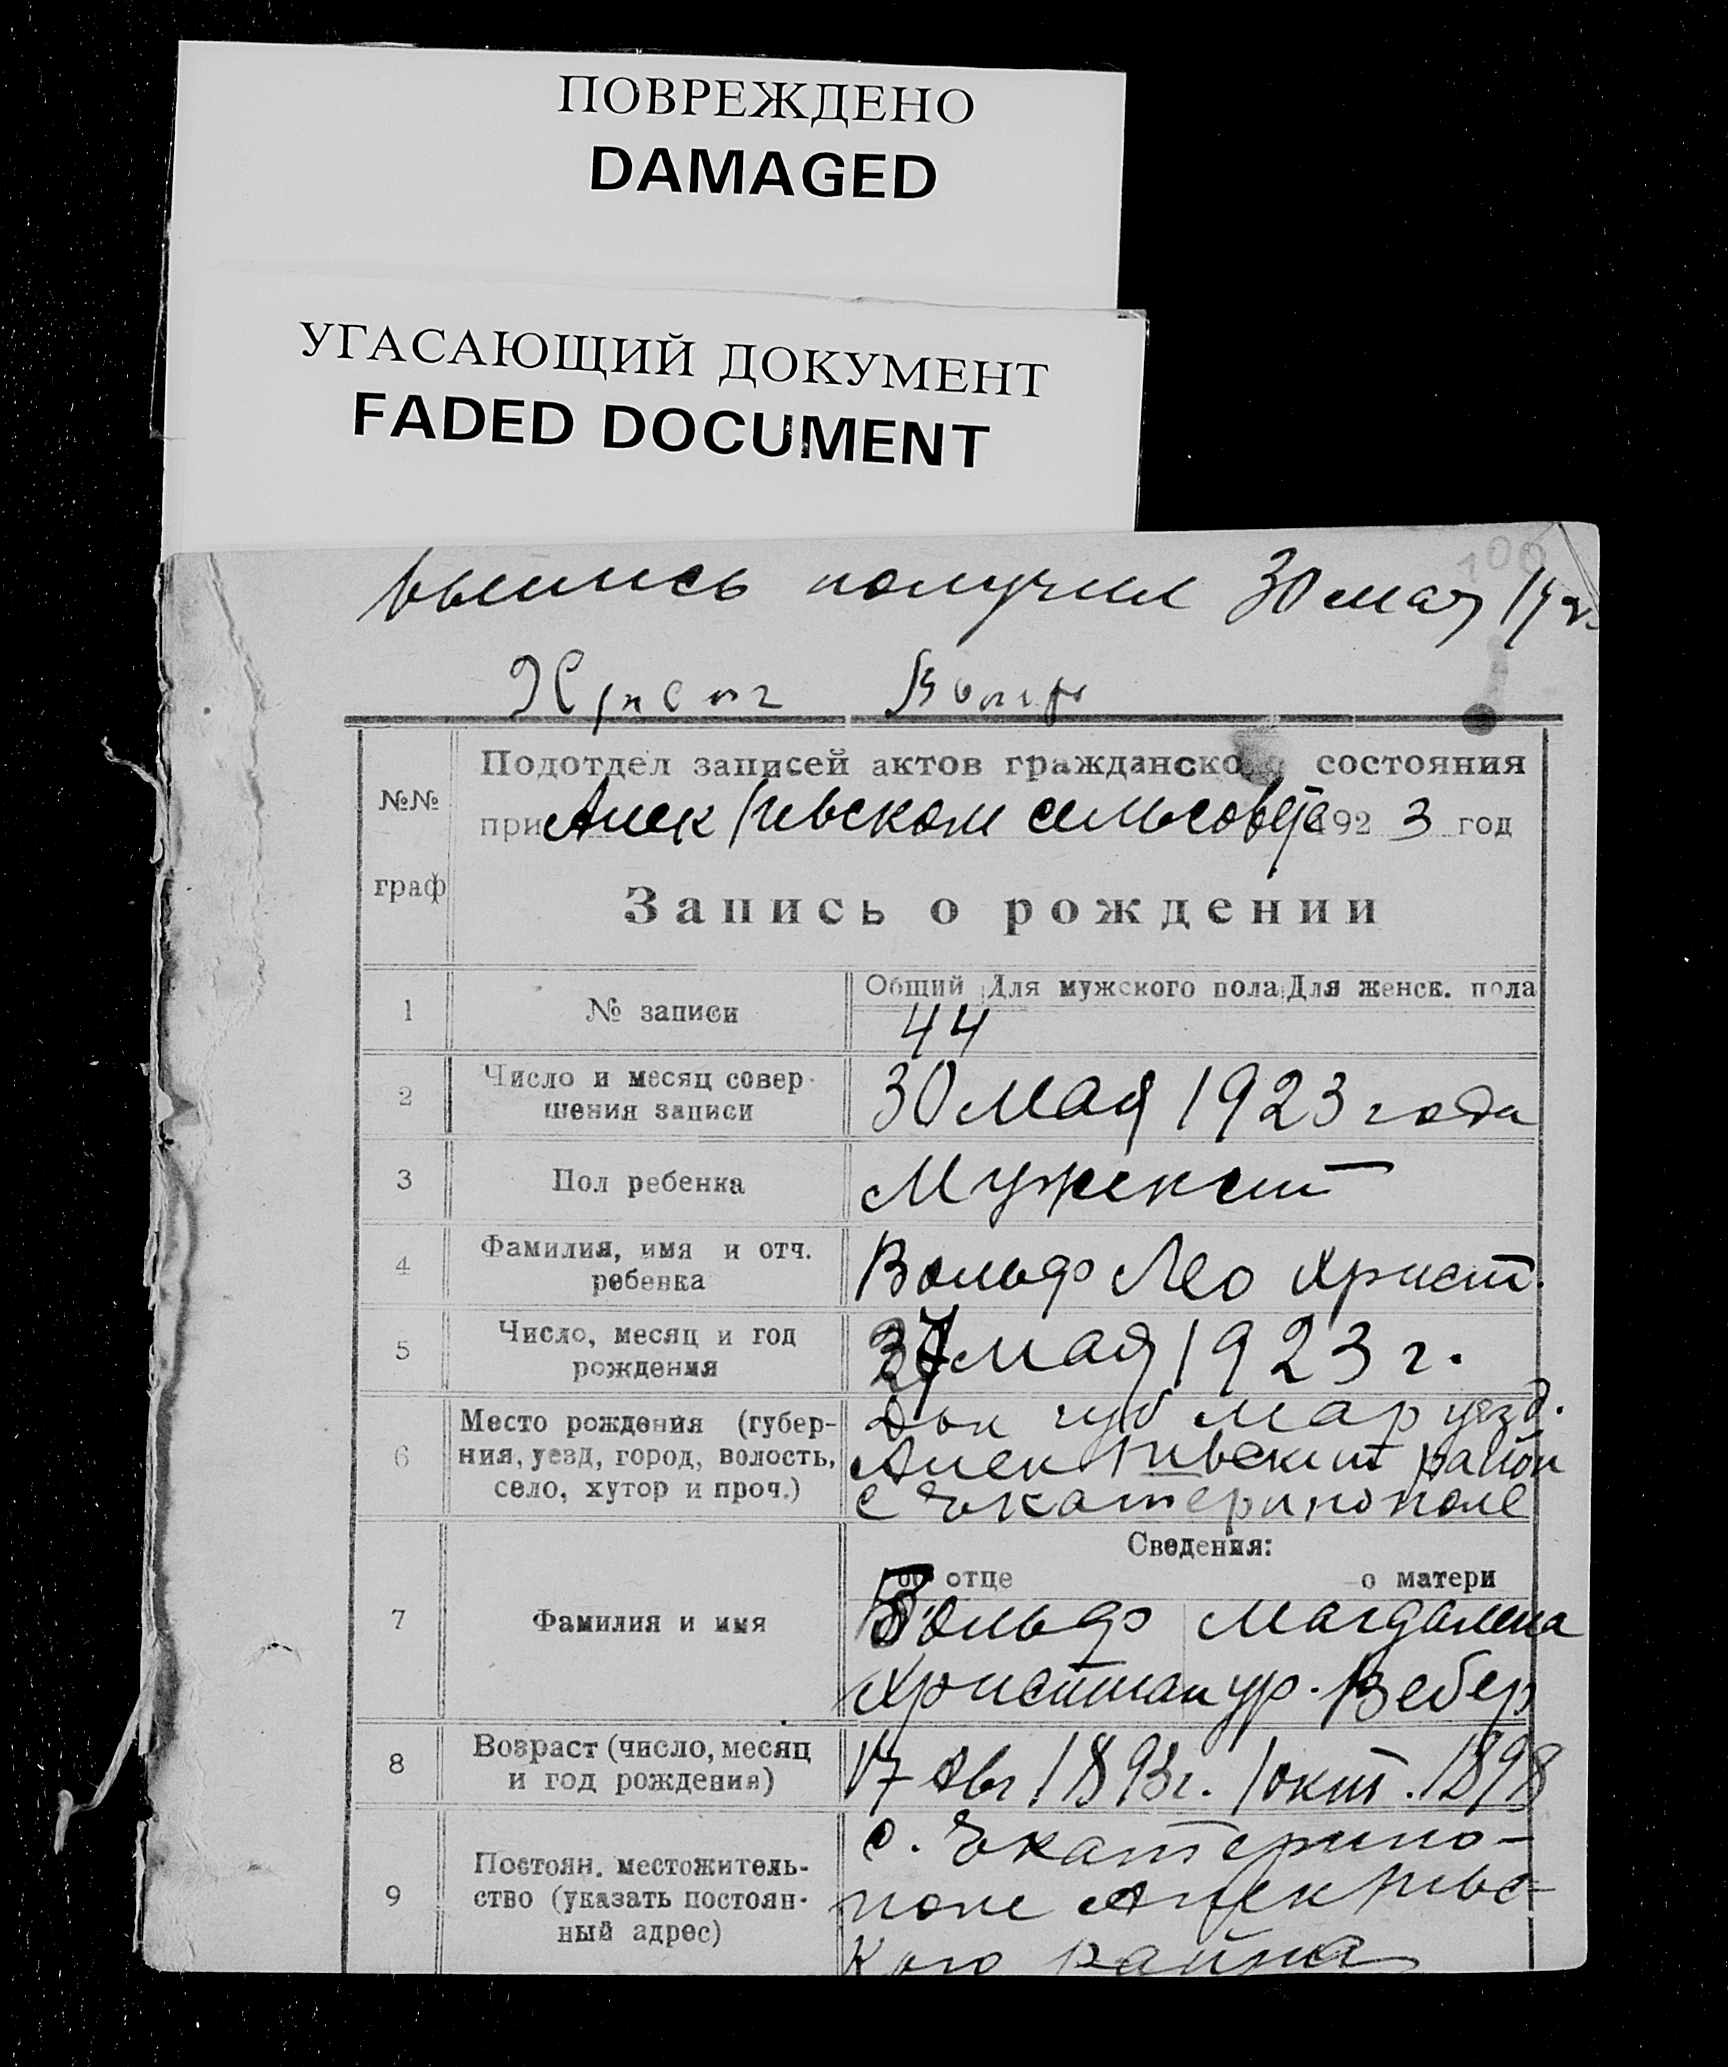 ПОВРЕЖДЕНО
DAMAGED
УГАСАЮЩИЙ ДОКУМЕНТ
FADED DOCUMENT
100
выпись получил 30 мая
Христ Вольф
№№ граф
Подотдел записей актов гражданско состояния
при сельсовете 192 3 год
Запись о рождении
Общий Для мужского пола Для женск. пола
1 № записи 44
2 Число и месяц совер-
шения записи 30 мая 1923 года
3 Пол ребенка Мужской
4 Фамилия, имя и отч.
ребенка Вольф Лео Христ.
5 Число, месяц и год
рождения мая 1923 г.
6 Место рождения (губер-
ния, уезд, город, волость,
село, хутор и проч.)
Дон губ Мар уезд.
район
с Екатеринополе
Сведения:
об отце о матери
7 Фамилия и имя
Вольф Магдалена
Христиан ур. Вебер
8 Возраст (число, месяц
и год рождения) 17 Авг 1893 г. 1 окт. 1898
9 Постоян. местожитель-
ство (указать постоян-
ный адрес)
с. Екатерино-
поле
кого района